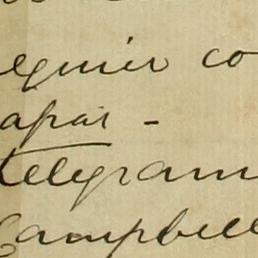 equier co
apar -
telegram
Campbell